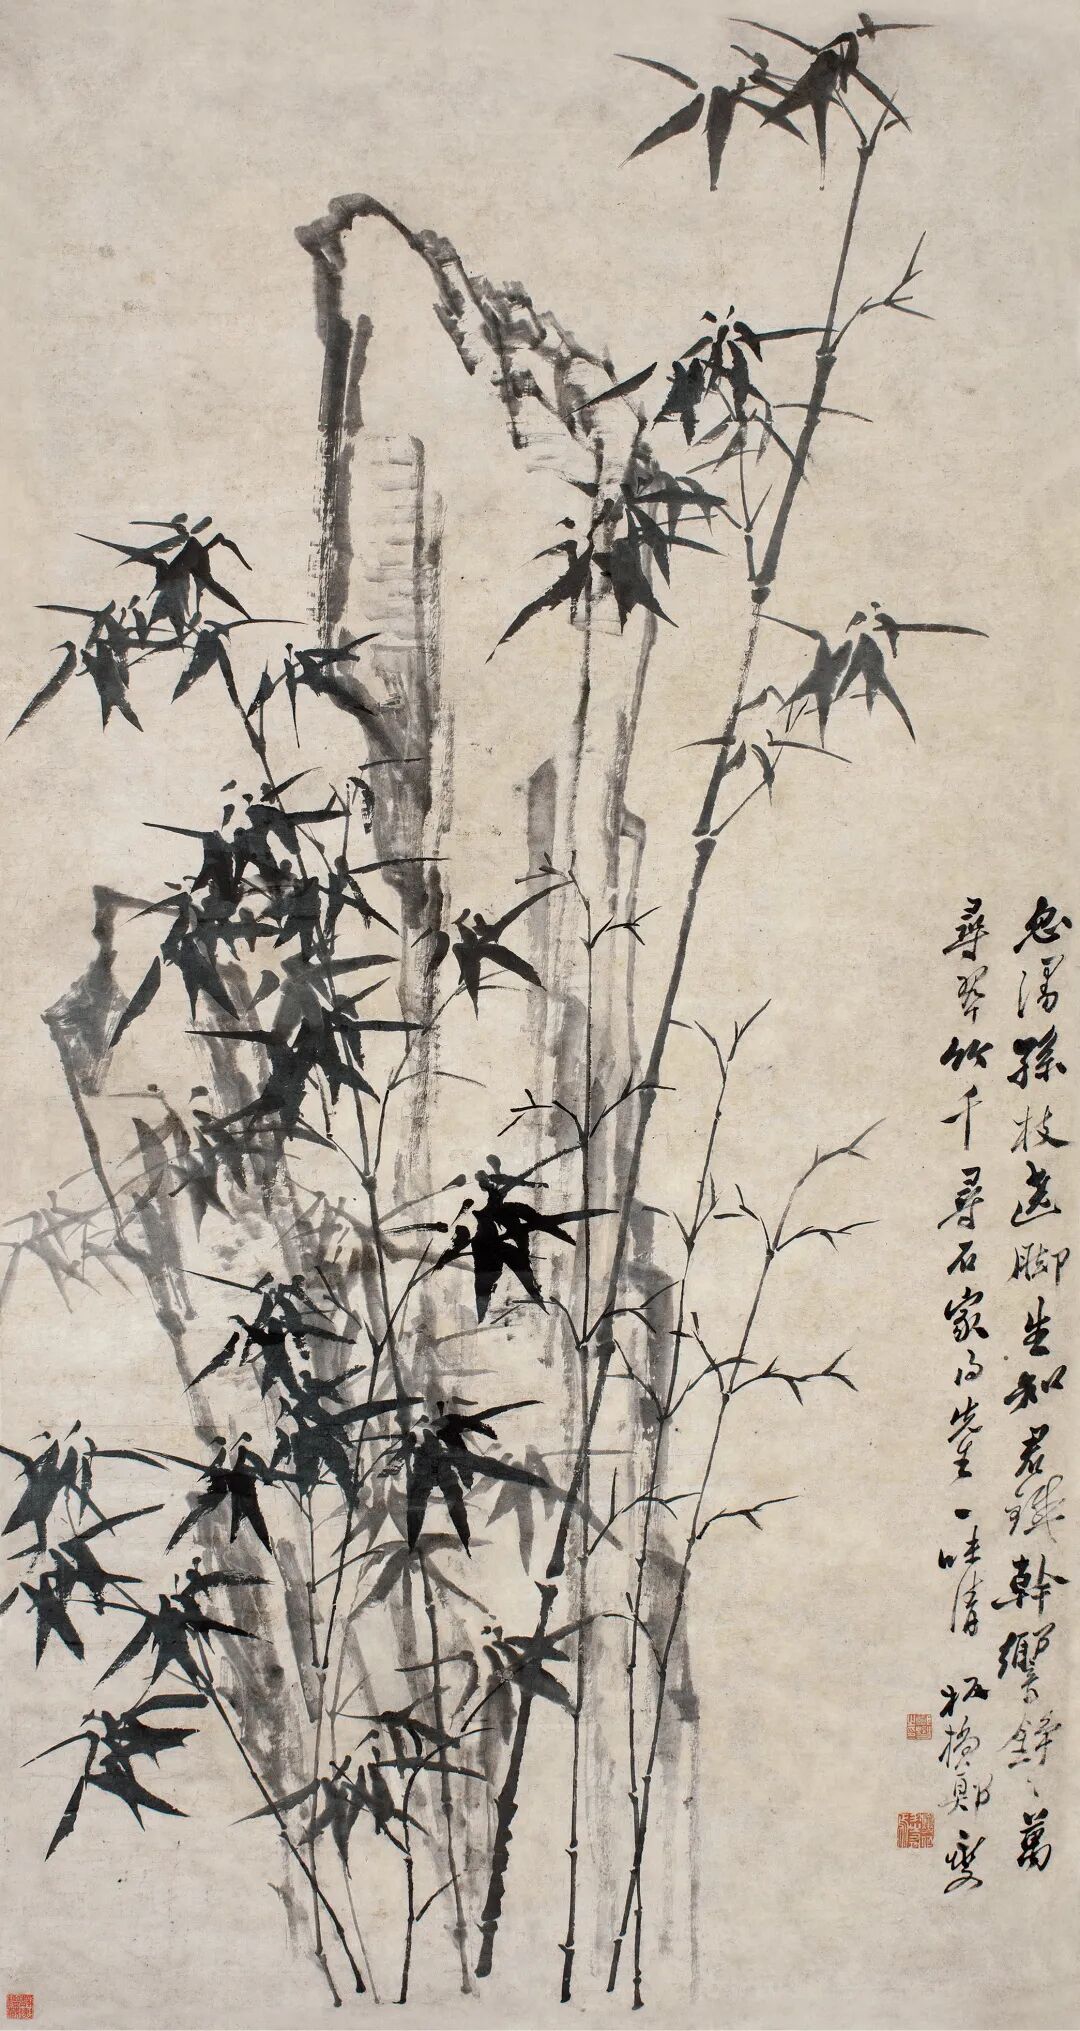 忽漫孫枝遶脚生知君鐵幹響錚〻萬
尋翠竹千尋石先生一味清 板橋鄭燮